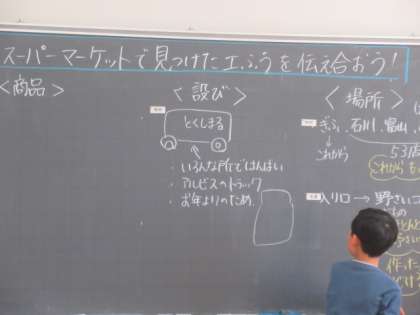 スーパーマーケットで見つけた工ふうを伝え合おう!
<商品>
<設び>
とくしまる
・いろんな所ではんばい
・アルビスのトラック
・お年よりのため
<場所>
ぎふ、石川、富山
これから
53店
入り口→野さい